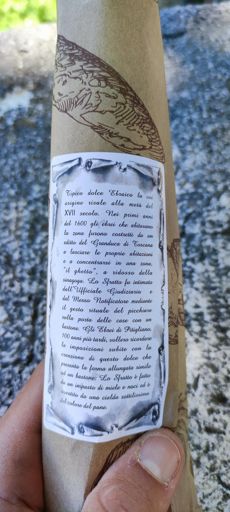 Tipico dolce Ebraico la sua
origine risale alla metà del
XVII secolo. Nei primi anni
del 1600 gli ebrei che abitavano
la zona furono costretti da un
editto del Granduca di Toscana
a lasciare le proprie abitazioni
e a concentrarsi in una zona,
"il ghetto", a ridosso della
sinagoga. Lo Sfratto fu intimato
dall'Ufficiale Giudiziario e
dal Messo Notificatore mediante
il gesto rituale del picchiare
sulla porta delle case con un
bastone. Gli Ebrei di Pitigliano,
100 anni più tardi, vollero ricordare
la imposizione subita con la
creazione di questo dolce che
presenta la forma allungata simile
ad un bastone: Lo Sfratto è fatto
da un impasto di miele e noci ed è
avvolto da una cialda sottilissima
del colore del pane.